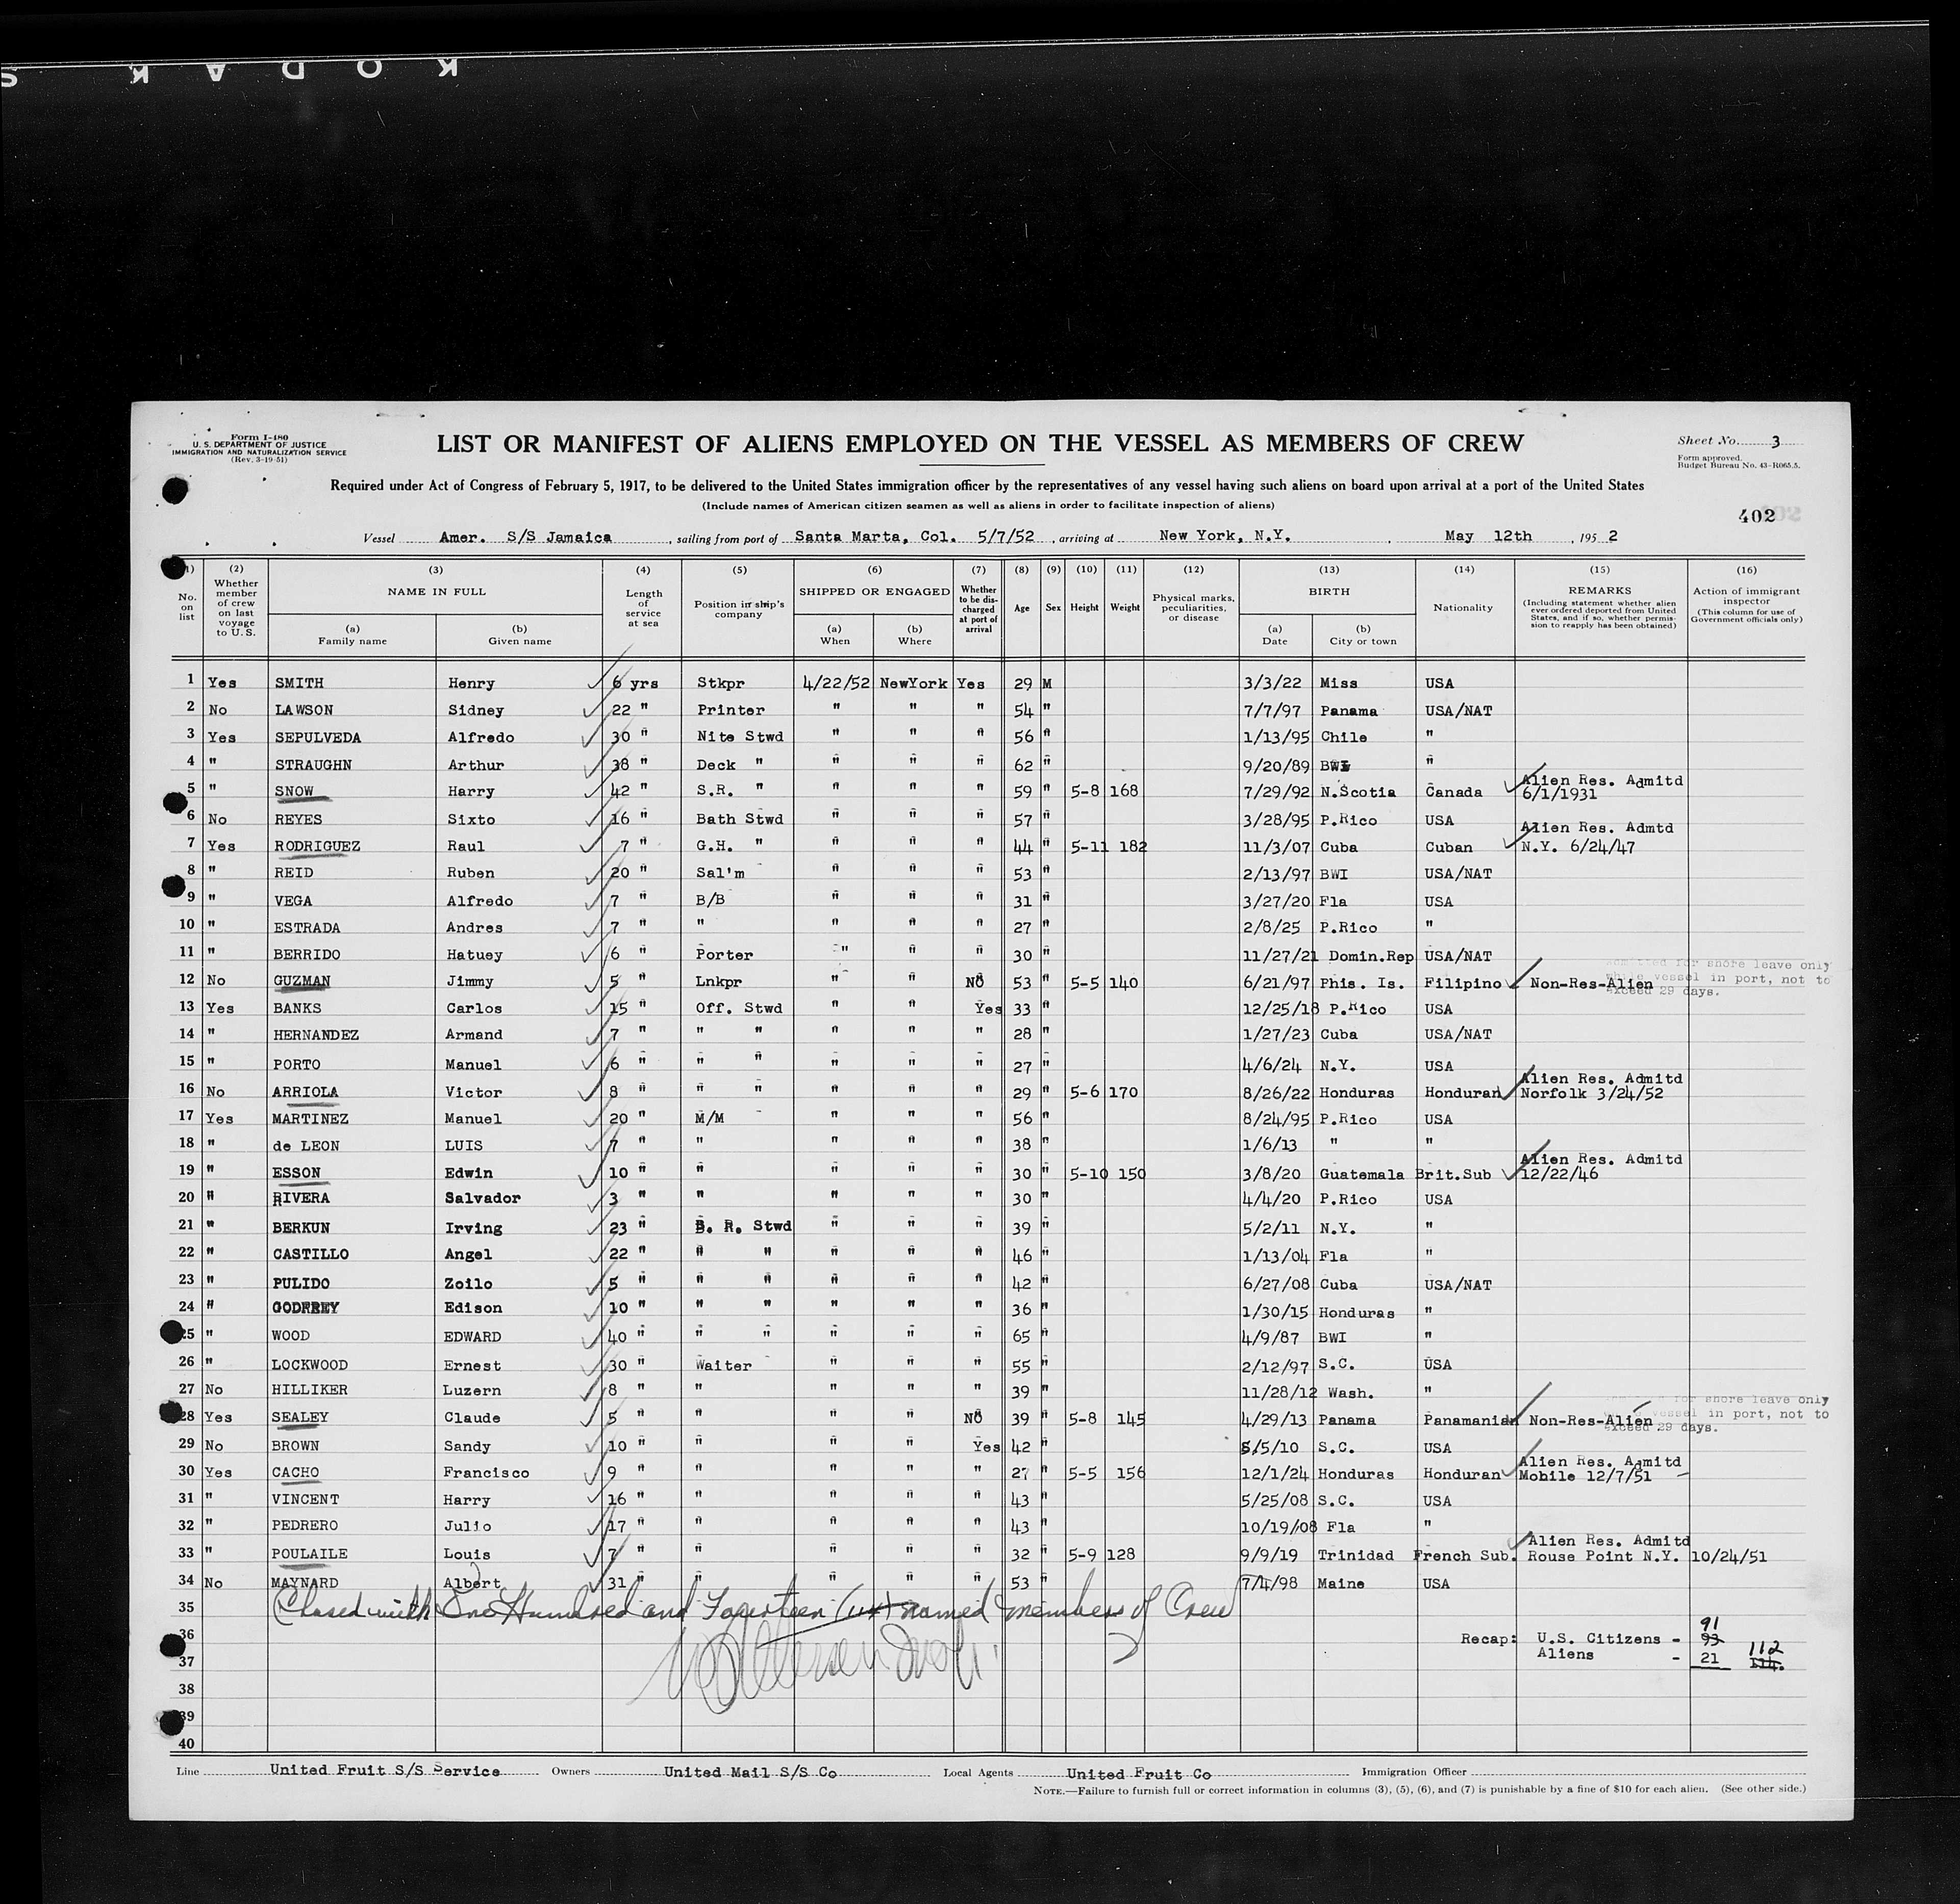 KODAK S
Form I-480
U. S. DEPARTMENT OF JUSTICE
IMMIGRATION AND NATURALIZATION SERVICE
(Rev. 3-19-51)
LIST OR MANIFEST OF ALIENS EMPLOYED ON THE VESSEL AS MEMBERS OF CREW
Sheet No. 3
Form approved.
Budget Bureau No. 43-R065.5.
Required under Act of Congress of February 5, 1917, to be delivered to the United States immigration officer by the representatives of any vessel having such aliens on board upon arrival at a port of the United States
(Include names of American citizen seamen as well as aliens in order to facilitate inspection of aliens)
402
Vessel Amer. S/S Jamaica, sailing from port of Santa Marta, Col. 5/7/52, arriving at New York, N.Y., May 12th, 1952
(1) No. on list
(2) Whether member of crew on last voyage to U.S.
(3) NAME IN FULL (a) Family name (b) Given name
(4) Length of service at sea
(5) Position in ship's company
(6) SHIPPED OR ENGAGED (a) When (b) Where
(7) Whether to be discharged at port of arrival
(8) Age
(9) Sex
(10) Height
(11) Weight
(12) Physical marks, peculiarities, or disease
(13) BIRTH (a) Date (b) City or town
(14) Nationality
(15) REMARKS (Including statement whether alien ever ordered deported from United States, and if so, whether permission to reapply has been obtained)
(16) Action of immigrant inspector (This column for use of Government officials only)
1 Yes SMITH Henry 6 yrs Stkpr 4/22/52 NewYork Yes 29 M 3/3/22 Miss USA
2 No LAWSON Sidney 22 " Printer " " " 54 " 7/7/97 Panama USA/NAT
3 Yes SEPULVEDA Alfredo 30 " Nite Stwd " " " 56 " 1/13/95 Chile "
4 " STRAUGHN Arthur 38 " Deck " " " " 62 " 9/20/89 BWI "
5 " SNOW Harry 42 " S.R. " " " " 59 " 5-8 168 7/29/92 N.Scotia Canada Alien Res. Admitd 6/1/1931
6 No REYES Sixto 16 " Bath Stwd " " " 57 " 3/28/95 P.Rico USA
7 Yes RODRIGUEZ Raul 7 " G.H. " " " " 44 " 5-11 182 11/3/07 Cuba Cuban Alien Res. Admtd N.Y. 6/24/47
8 " REID Ruben 20 " Sal'm " " " 53 " 2/13/97 BWI USA/NAT
9 " VEGA Alfredo 7 " B/B " " " 31 " 3/27/20 Fla USA
10 " ESTRADA Andres 7 " " " " " 27 " 2/8/25 P.Rico "
11 " BERRIDO Hatuey 6 " Porter " " " 30 " 11/27/21 Domin.Rep USA/NAT
12 No GUZMAN Jimmy 5 " Lnkpr " " NO 53 " 5-5 140 6/21/97 Phis. Is. Filipino Non-Res-Alien for shore leave only while vessel in port, not to exceed 29 days.
13 Yes BANKS Carlos 15 " Off. Stwd " " Yes 33 " 12/25/18 P.Rico USA
14 " HERNANDEZ Armand 7 " " " " " " 28 " 1/27/23 Cuba USA/NAT
15 " PORTO Manuel 6 " " " " " " 27 " 4/6/24 N.Y. USA
16 No ARRIOLA Victor 8 " " " " " " 29 " 5-6 170 8/26/22 Honduras Honduran Alien Res. Admitd Norfolk 3/24/52
17 Yes MARTINEZ Manuel 20 " M/M " " " 56 " 8/24/95 P.Rico USA
18 " de LEON LUIS 7 " " " " " 38 " 1/6/13 " "
19 " ESSON Edwin 10 " " " " " 30 " 5-10 150 3/8/20 Guatemala Brit.Sub Alien Res. Admitd 12/22/46
20 " RIVERA Salvador 3 " " " " " 30 " 4/4/20 P.Rico USA
21 " BERKUN Irving 23 " B. R. Stwd " " " 39 " 5/2/11 N.Y. "
22 " CASTILLO Angel 22 " " " " " " 46 " 1/13/04 Fla "
23 " PULIDO Zoilo 5 " " " " " " 42 " 6/27/08 Cuba USA/NAT
24 " GODFREY Edison 10 " " " " " " 36 " 1/30/15 Honduras "
25 " WOOD EDWARD 40 " " " " " " 65 " 4/9/87 BWI "
26 " LOCKWOOD Ernest 30 " Waiter " " " 55 " 2/12/97 S.C. USA
27 No HILLIKER Luzern 8 " " " " " 39 " 11/28/12 Wash. "
28 Yes SEALEY Claude 5 " " " " NO 39 " 5-8 145 4/29/13 Panama Panamanian Non-Res-Alien for shore leave only vessel in port, not to exceed 29 days.
29 No BROWN Sandy 10 " " " " Yes 42 " 5/5/10 S.C. USA
30 Yes CACHO Francisco 9 " " " " " 27 " 5-5 156 12/1/24 Honduras Honduran Alien Res. Admitd Mobile 12/7/51
31 " VINCENT Harry 16 " " " " " 43 " 5/25/08 S.C. USA
32 " PEDRERO Julio 17 " " " " " 43 " 10/19/08 Fla "
33 " POULAILE Louis 7 " " " " " 32 " 5-9 128 9/9/19 Trinidad French Sub. Alien Res. Admitd Rouse Point N.Y. 10/24/51
34 No MAYNARD Albert 31 " " " " " 53 " 7/4/98 Maine USA
35 Closed with One Hundred and Fourteen (114) named members of Crew
36 Recap: U.S. Citizens - 91 93
37 Aliens - 21 112 114.
38
39
40
Line United Fruit S/S Service Owners United Mail S/S Co Local Agents United Fruit Co Immigration Officer
NOTE.—Failure to furnish full or correct information in columns (3), (5), (6), and (7) is punishable by a fine of $10 for each alien. (See other side.)